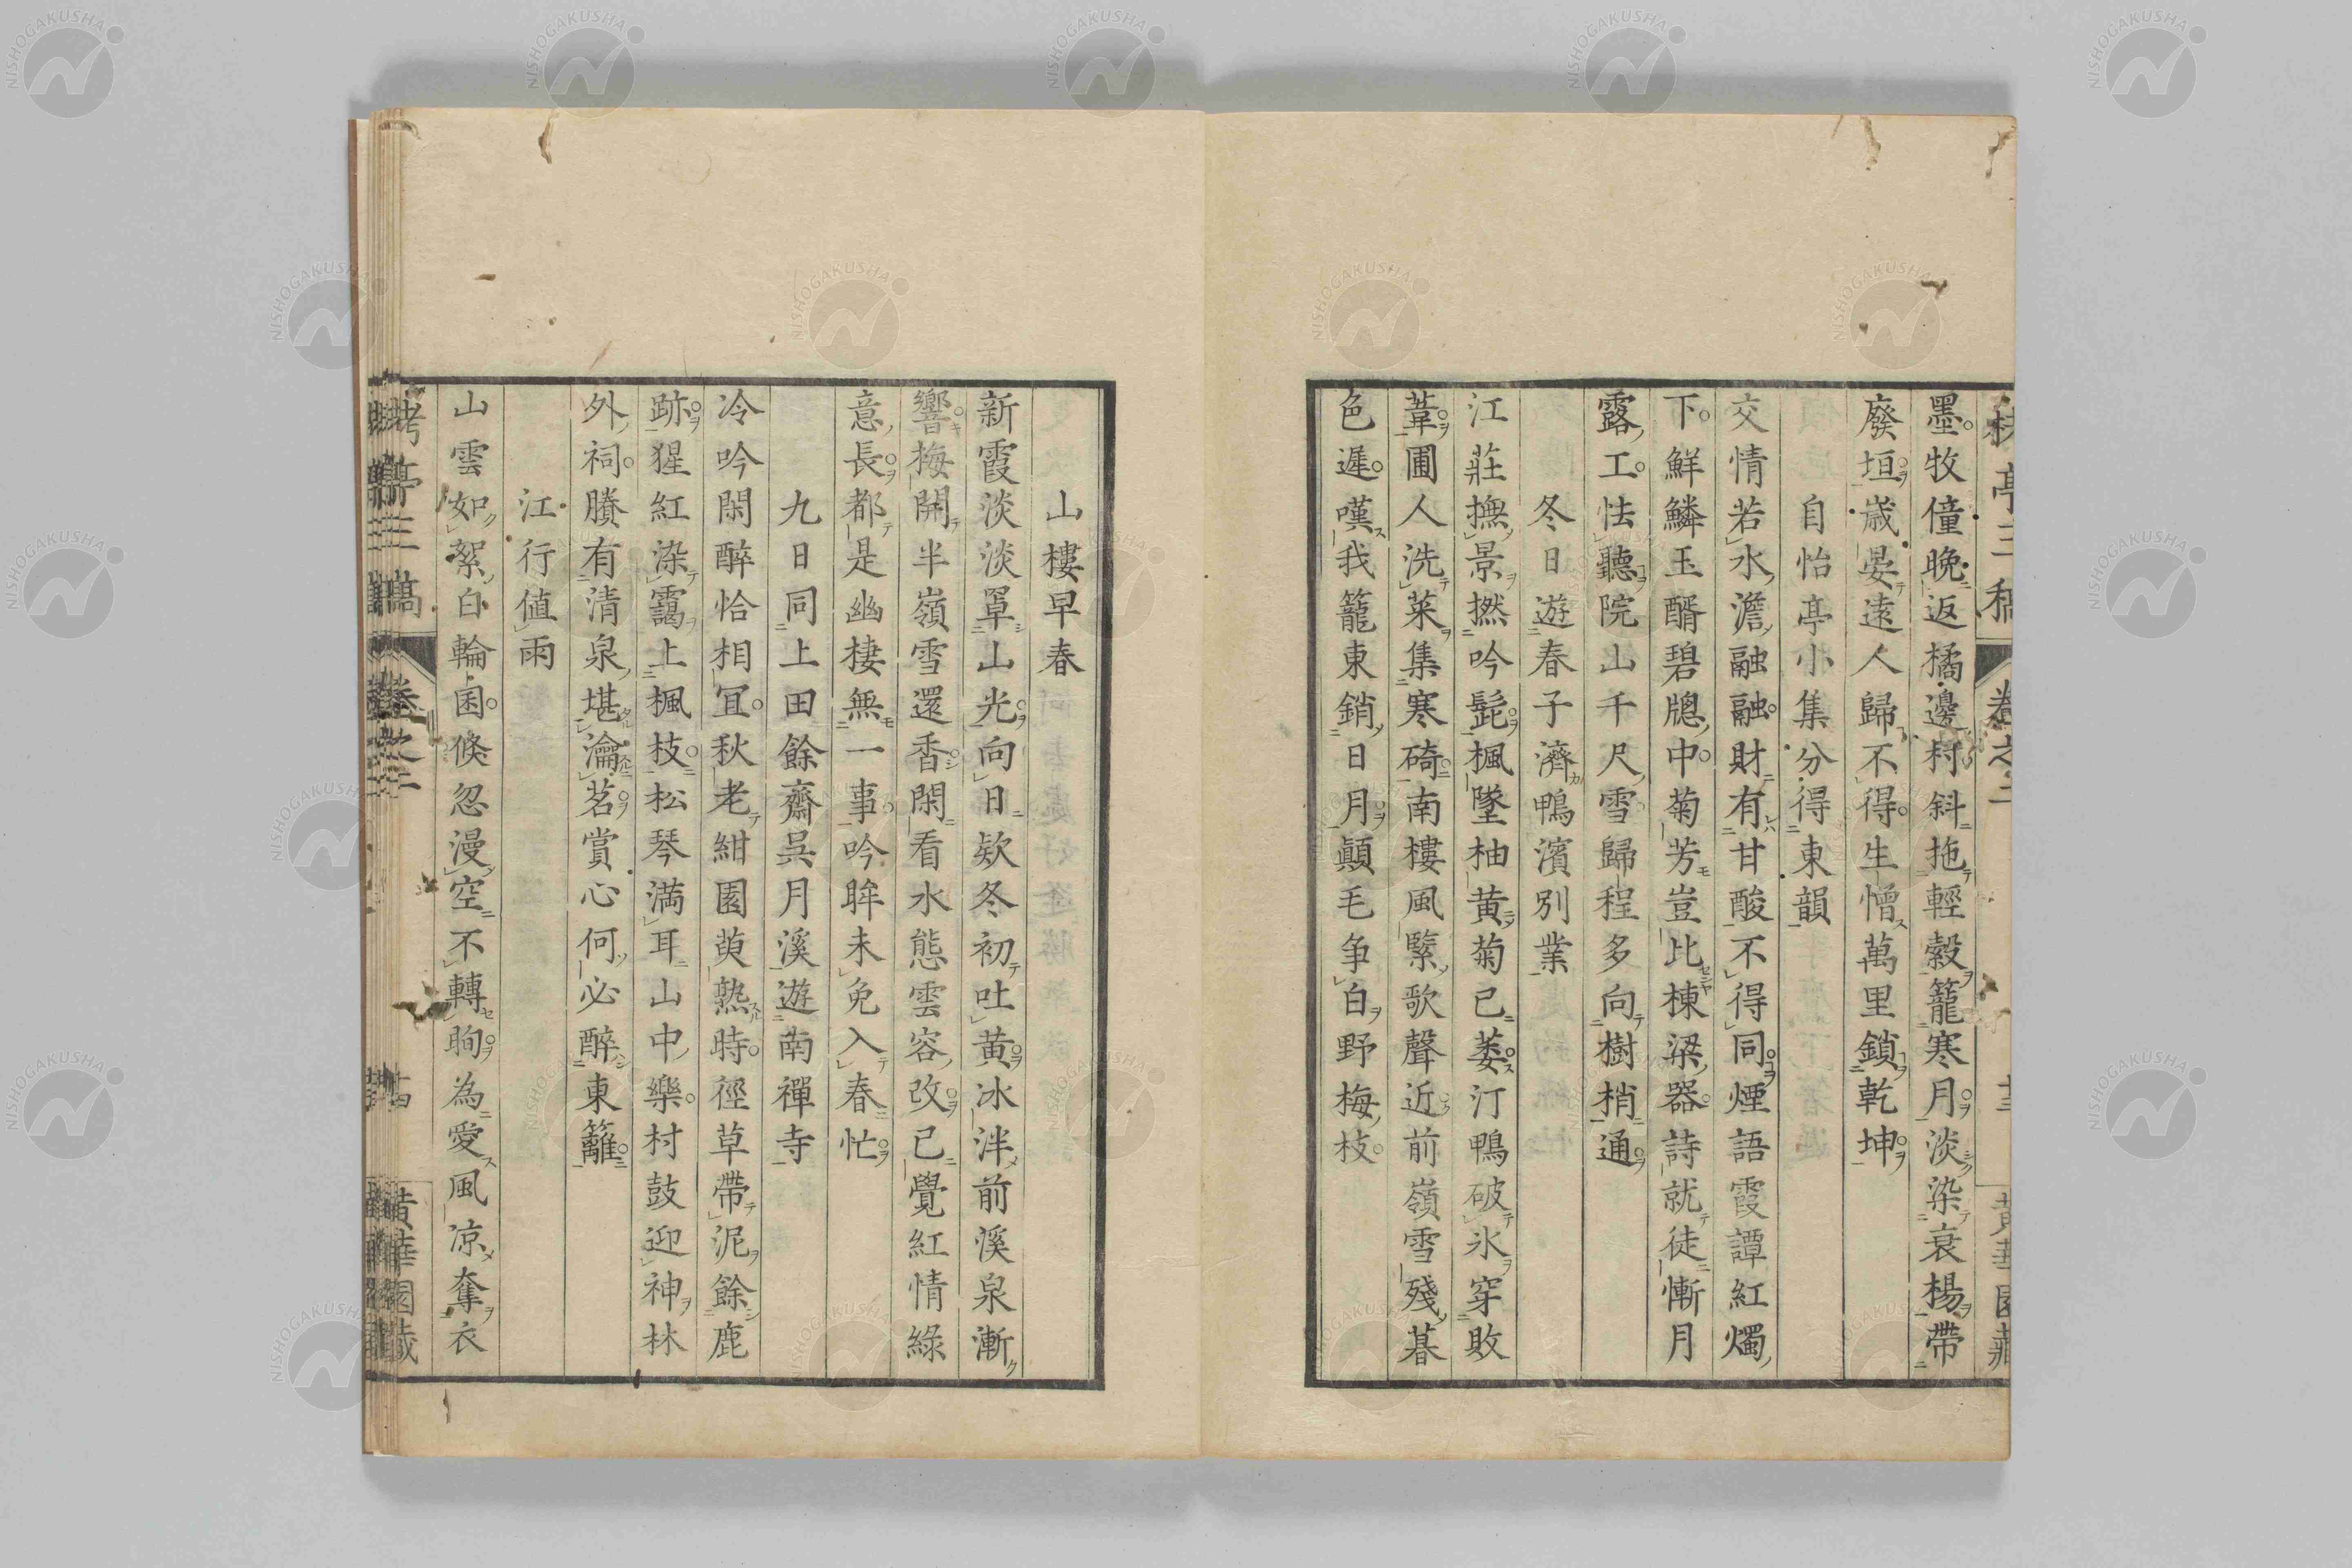 墨牧僮晩返橘邊村斜拖輕縠籠寒月淡染衰楊帶
廢垣歲晏遠人歸不得生憎萬里鎖乾坤
自怡亭小集分得東韻
交情若水澹融融財有甘酸不得同煙語霞譚紅燭
下鮮鱗玉醑碧牕中菊芳豈比棟梁器詩就徒慚月
露工怯聽院山千尺雪歸程多向樹梢通
冬日遊春子濟鴨濱別業
江莊撫景撚吟髭楓墜柚黄菊已萎汀鴨破氷穿敗
葦圃人洗菜集寒碕南樓風緊歌聲近前嶺雪殘暮
色遲嘆我籠東銷日月顛毛争白野梅枝
山樓早春
新霞淡淡罩山光向日欵冬初吐黄冰泮前溪泉漸
響梅開半嶺雪還香閑看水態雲容改已覺紅情綠
意長都是幽棲無一事吟眸未免入春忙
九日同上田餘齋吳月溪遊南禪寺
冷吟閑醉恰相宜秋老紺園萸熟時徑草帶泥餘鹿
跡猩紅染靄上楓枝松琴滿耳山中樂村鼓迎神林
外祠賸有清泉堪瀹茗賞心何必醉東籬
江行値雨
山雲如絮白輪囷倏忽漫空不轉眴為愛風凉奪衣
亭三稿
卷之二
十四
黄華園藏